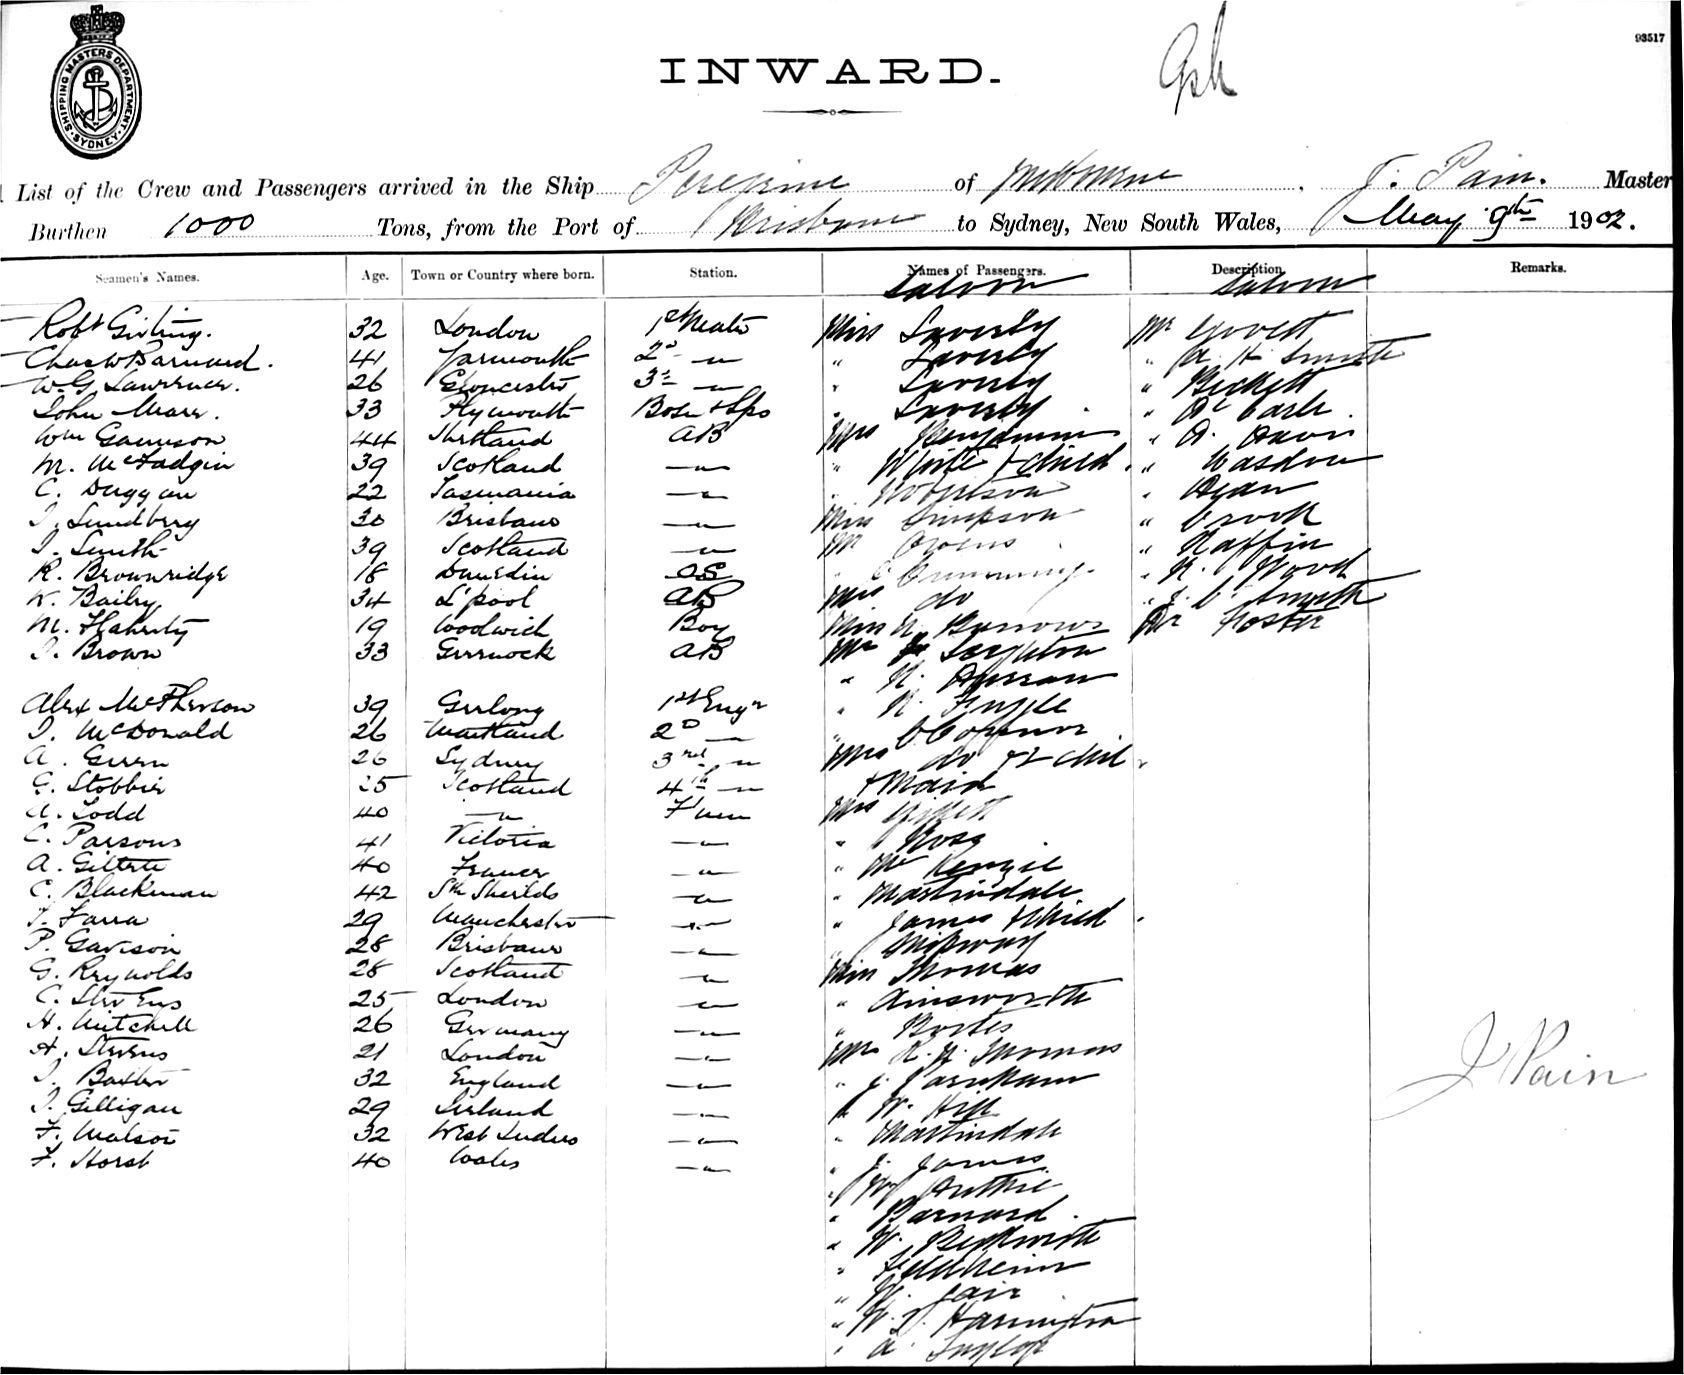 93517
SHIPPING MASTERS DEPARTMENT. SYDNEY
INWARD.
List of the Crew and Passengers arrived in the Ship Peregrine of Melbourne, J. Pain. Master
Burthen 1000 Tons, from the Port of Brisbane to Sydney, New South Wales, May 9th 1902.
Seamen's Names. Age. Town or Country where born. Station. Names of Passengers. Description Remarks.
Saloon Saloon
Robt Girling. 32 London 1st Mate Miss Laverty Mr Govett
Chas W Barnard. 41 Yarmouth 2d " " Laverty " A H Smith
W. G. Lawrence. 26 Gloucester 3d " " Laverty " Beckett
John Mears. 33 Plymouth Bosn & Lps " Laverty "
Wm Garrison 44 Shetland AB Mrs Benjamin "
M. McFadgin 39 Scotland " " White & child "
C. Duggan 22 Tasmania " " Robertson " Ryan
J. Lundberg 30 Brisbane " Miss Simpson " Crook
J. Smith 39 Scotland " Mr Owens " Raffin
R. Brownridge 18 Dunedin OS " Cumming " R. Wood
W. Baily 34 L'pool AB Mrs do " J. C. Smith
M. Flaherty 19 Woolwich Boy Miss Burrows Dr Foster
J. Brown 33 Greenock AB Mr Leighton
Alex McPherson 39 Geelong 1st Engr
J. McDonald 26 Maitland 2d " " O'Connor
A. Green 26 Sydney 3rd " Mrs do & 2 child
G. Stobbie 25 Scotland 4th " & Maid
A. Todd 40 " F'man Mrs
C. Parsons 41 Victoria " " Ross
A. Gilbert 40 France " " McKenzie
C. Blackman 42 Sth Sheilds " " Martindale
J. Farra 29 Manchester " " James & Child
P. Garrison 28 Brisbane "
G. Reynolds 28 Scotland " Miss Thomas
C. Stevens 25 London " " Ainsworth
H. Mitchell 26 Germany "
H. Stevens 21 London " Mr R. H. Thomas
J. Baxter 32 England " " J. Farnham
J. Gilligan 29 Ireland " " W. Hill
F. Watson 32 West Indies " " Martindale
F. Horst 40 Wales " " J. James
" Barnard.
" W. Beckwith
" Feldheim
" W. Fair
" Harrington
" A. Taylor
J Pain